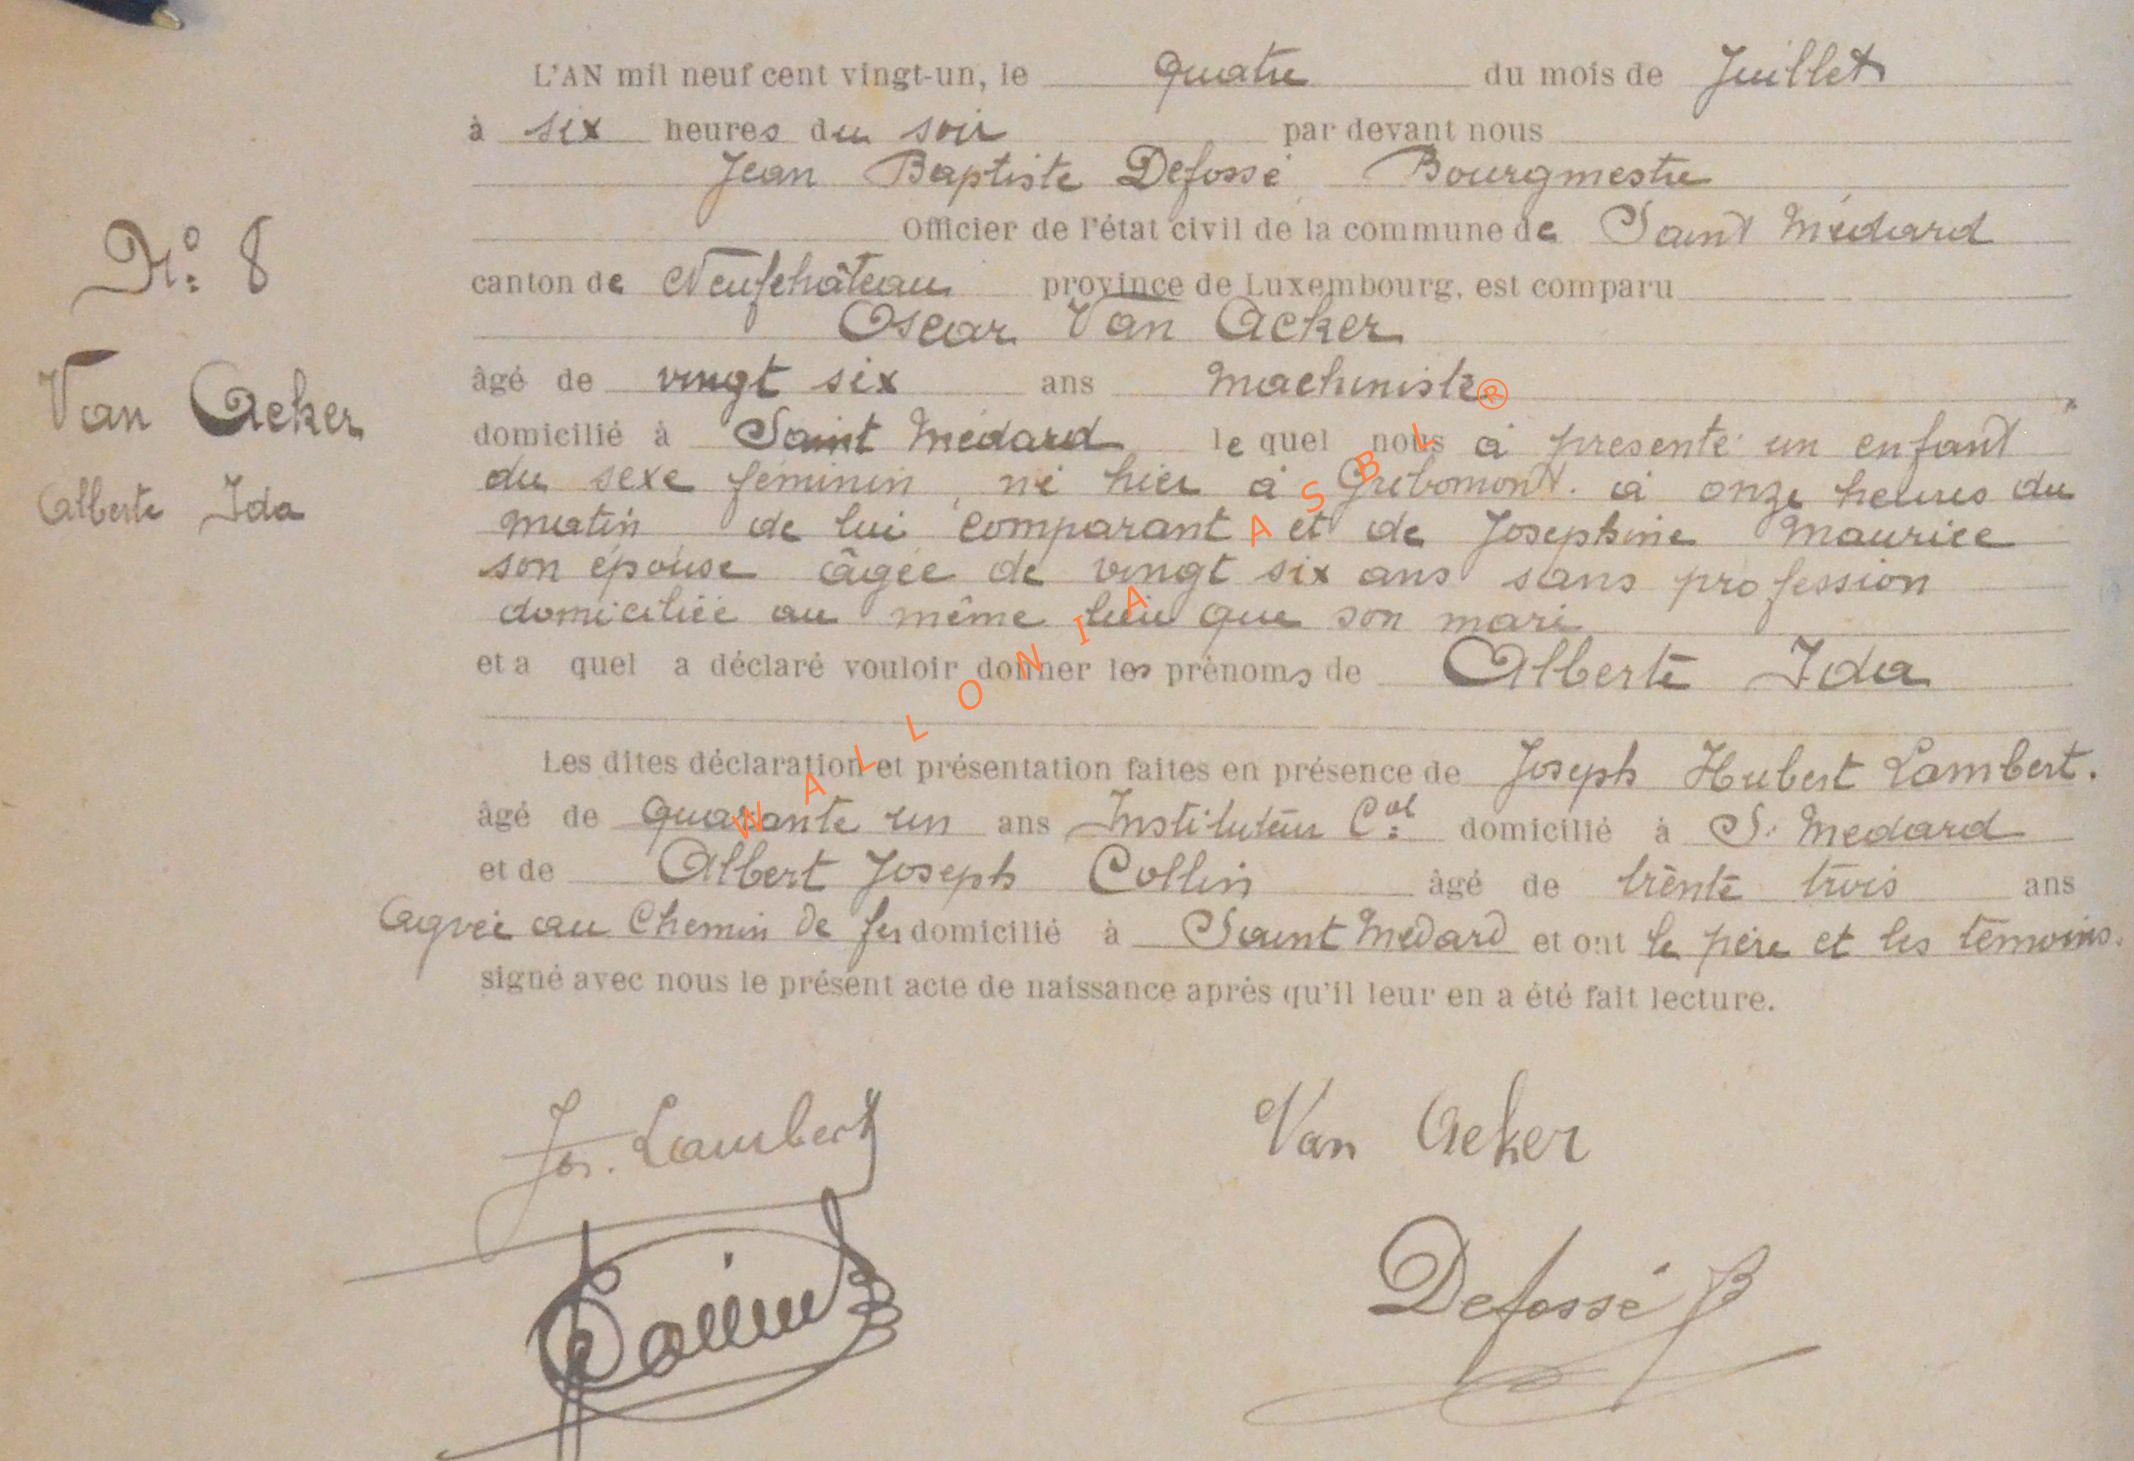 L'AN mil neuf cent vingt-un, le quatre du mois de Juillet
à six heures du soir par devant nous
Jean Baptiste Defossé Bourgmestre
Officier de l'état civil de la commune de Saint Médard
canton de Neufchâteau province de Luxembourg, est comparu
Oscar Van Acker
âgé de vingt six ans machiniste
domicilié à Saint Médard le quel nous a présenté un enfant
du sexe féminin, né hier à Gribomont. à onze heures du
matin de lui comparant et de Josephine Maurice
son épouse âgée de vingt six ans sans profession
domiciliée au même lieu que son mari
et a quel a déclaré vouloir donner les prénoms de Alberte Ida
Les dites déclaration et présentation faites en présence de Joseph Hubert Lambert.
âgé de quarante un ans Instituteur Cal domicilié à St Médard
et de Albert Joseph Collin âgé de trente trois ans
Agréé au Chemin de fer domicilié à Saint Médard et ont le père et les témoins.
signé avec nous le présent acte de naissance après qu'il leur en a été fait lecture.
No: 8
Van Acker
Alberte Ida
Jos. Lambert
Van Acker
Collin
Defossé JB
WALLONIA ASBL®